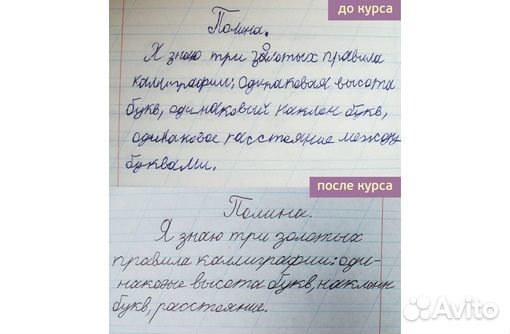 до курса
Полина.
Я знаю три золотых правила
каллиграфии: одинаковая высота
букв, одинаковый наклон букв,
одинаковое расстояние между
буквами.
после курса
Полина.
Я знаю три золотых
правила каллиграфии: оди-
наковые высота букв, наклоны
букв, расстояние.
Avito